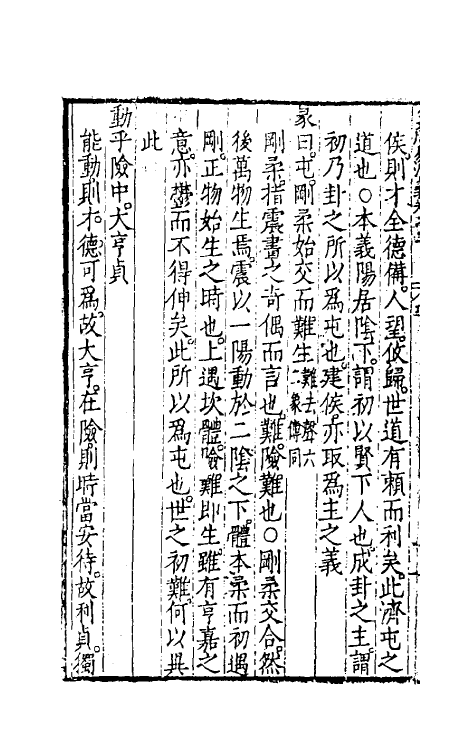 侯則才全德備人望攸歸世道有賴而利矣此濟屯之
道也○本義陽居陰下謂初以賢下人也成卦之主謂
初乃卦之所以為屯也建侯亦取為主之義
彖曰屯剛柔始交而難生難去聲六二象傳同
剛柔指震畫之奇偶而言也難險難也○剛柔交合然
後萬物生焉震以一陽動於二陰之下體本柔而初遇
剛正物始生之時也上遇坎體險難即生雖有亨嘉之
意亦鬱而不得伸矣此所以為屯也世之初難何以異
此
動乎險中大亨貞
能動則才德可為故大亨在險則時當安待故利貞獨